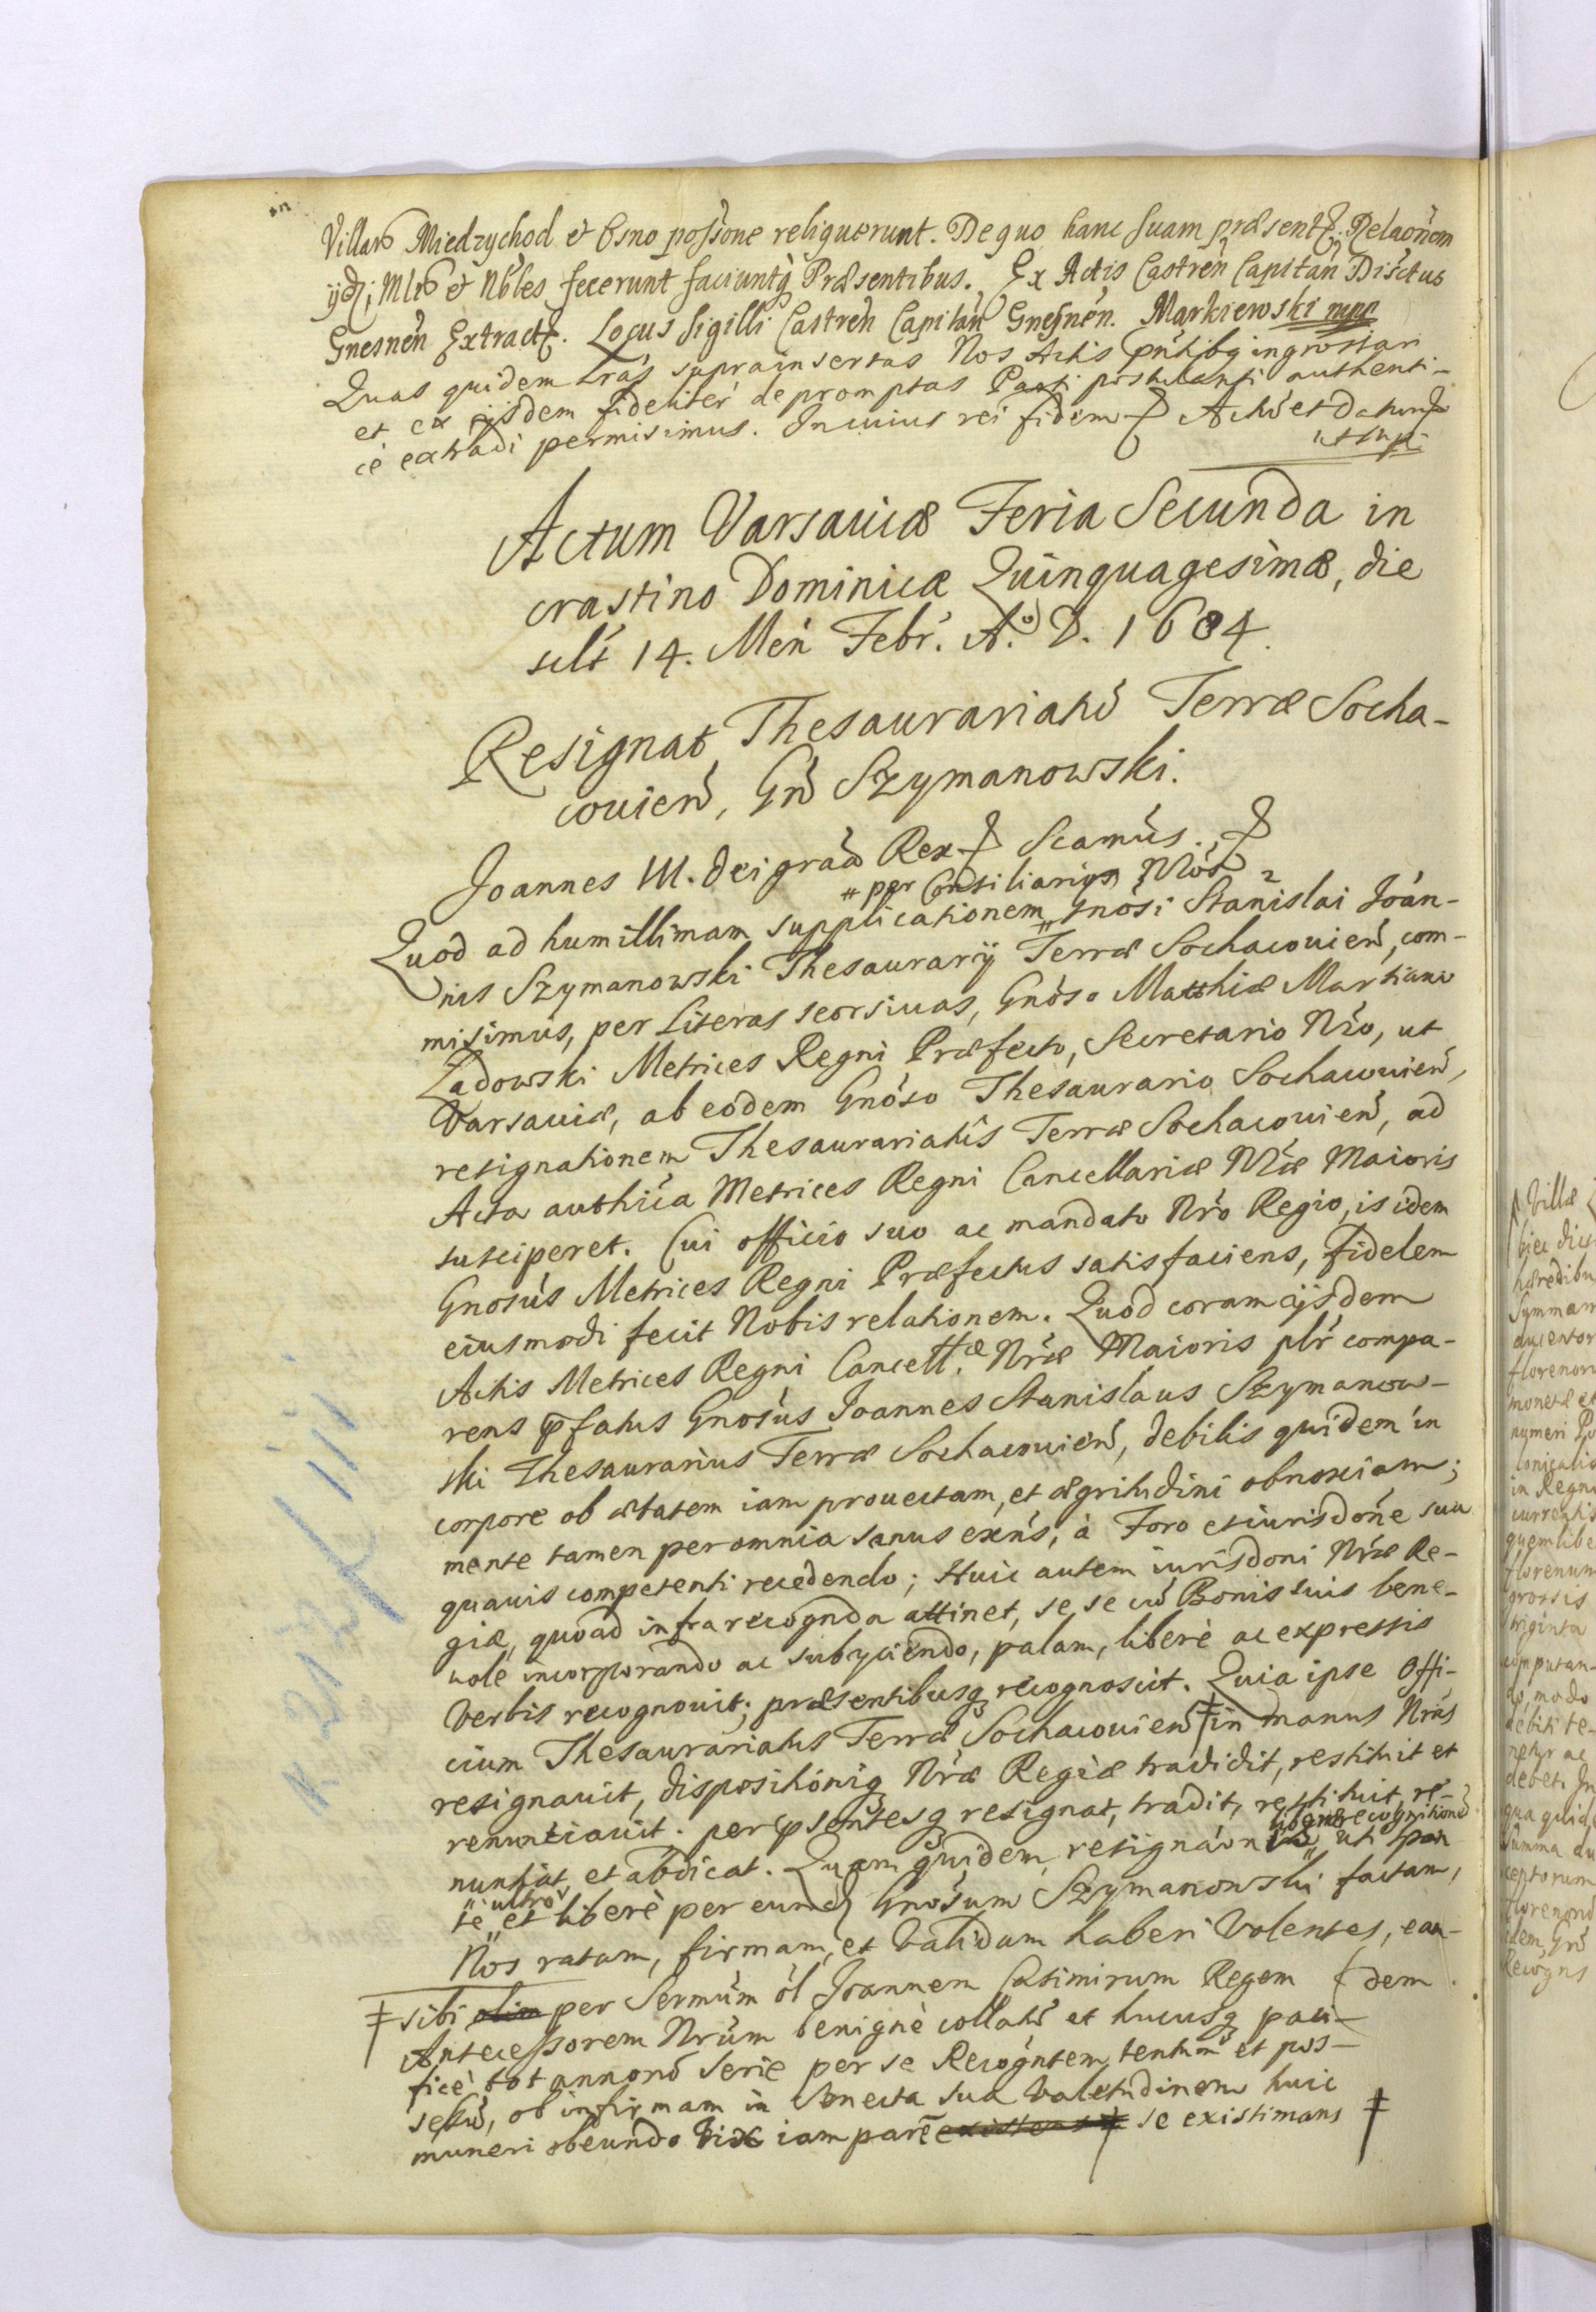 Villarũ Miedzychod et Osno poſsione reliquerunt. De quo hanc suam præsent. Relaõnem
ijd, Mlrũ et Nbles fecerunt faciuntq́ Præsentibus. Ex Actis Castreñ Capitañ Disctus
Gnesneñ Extract. Locus Sigilli Castreñ Capitañ Gnesneñ. Markiewski mpp
Quas quidem Lrás suprainsertas Nos Actis pñtibq ingrossari
et ex ijsdem fideliter depromptas Parti postulanti authenti-
cè extradi permisimus. In cuius rei fidem Actũ et datum
ut sup.
Actum Varsauiæ Feria Secunda in
crastino Dominicæ Quinquagesimæ, die
sclt 14. Meñ Febr. A.º D. 1684.
Resignat Thesaurariatũ Terræ Socha-
couieñ, Gñ Szymanowski.
Joannes III. Dei gráa Rex Scamús.
# per Consiliarios Nrós
Quod ad humillimam supplicationem # Gnósi Stanislai Joán-
nis Szymanowski Thesaurarij Terræ Sochacouieñ, com-
misimus, per Literas seorsiuas, Gnóso Matthiæ Martiano
Ladowski Metrices Regni Præfecto, Secretario Nró, ut
Varsauiæ, ab eodem Gnóso Thesaurario Sochacouieñ,
resignationem Thesaurariatûs Terræ Sochacouieñ, ad
Acta authíca Metrices Regni Cancellariæ Nræ Maioris
susciperet. Cui officio suo ac mandato Nró Regio, is idem
Gnosús Metrices Regni Præfectus satisfaciens, fidelem
eiusmodi fecit Nobis relationem. Quod coram ijsdem
Actis Metrices Regni Cancell.æ Nræ Maioris plr compa-
rens pfatus Gnosús Joannes Stanislaus Szymanow-
ski Thesaurarius Terræ Sochacouieñ, debilis quidem in
corpore ob ætatem iam prouectam, et ægritudini obnoxiam;
mente tamen per omnia sanus exñs, à Foro et iurisdóne sua
quauis competenti recedendo; Huic autem iurisdoni Nræ Re-
giæ, quoad infra recognda attinet, se se cũ Bonis suis bene-
uole incorporando ac subyciendo, palam, liberè ac expressis
Verbis recognouit; præsentibusq recognoscit. Quia ipse Offi-
cium Thesaurariatus Terræ Sochacouieñ ‡ in manus Nrás
resignauit, dispositióniq Nræ Regiæ tradidit, restituit et
renuntiauit. per psentesq resignat, tradit, restituit, re-
nuntiat, et abdicat. Quam quidem resignáon recognitionẽ uti span
té ultro et liberè per eumd Gnosum Szymanowski factam,
Nos ratam, firmam, et Validam haberi Volentes, ean-
dem
‡ sibi olim per Sermúm ol Joannem Casimirum Regem
Antecessorem Nrúm benignè collatũ et hucusq paci-
ficè tot annorũ serie per se Recogntem tentũ et pos-
sessũ, ob infirmam in Senecta sua Valetudinem huic
muneri obeundo Vix iam parẽ se existimans ‡
Villæ
hæredibu
Symmam
florenor
monetæ et
numeri Po
lonicalis
in Regno
currentis
quemlibe
florenum
grossis
triginta
computan-
do, modo
debiti te-
netur ac
debet. In
qua quid
summa du
ceptorum
florenorũ
idem, Grũ
Recogns